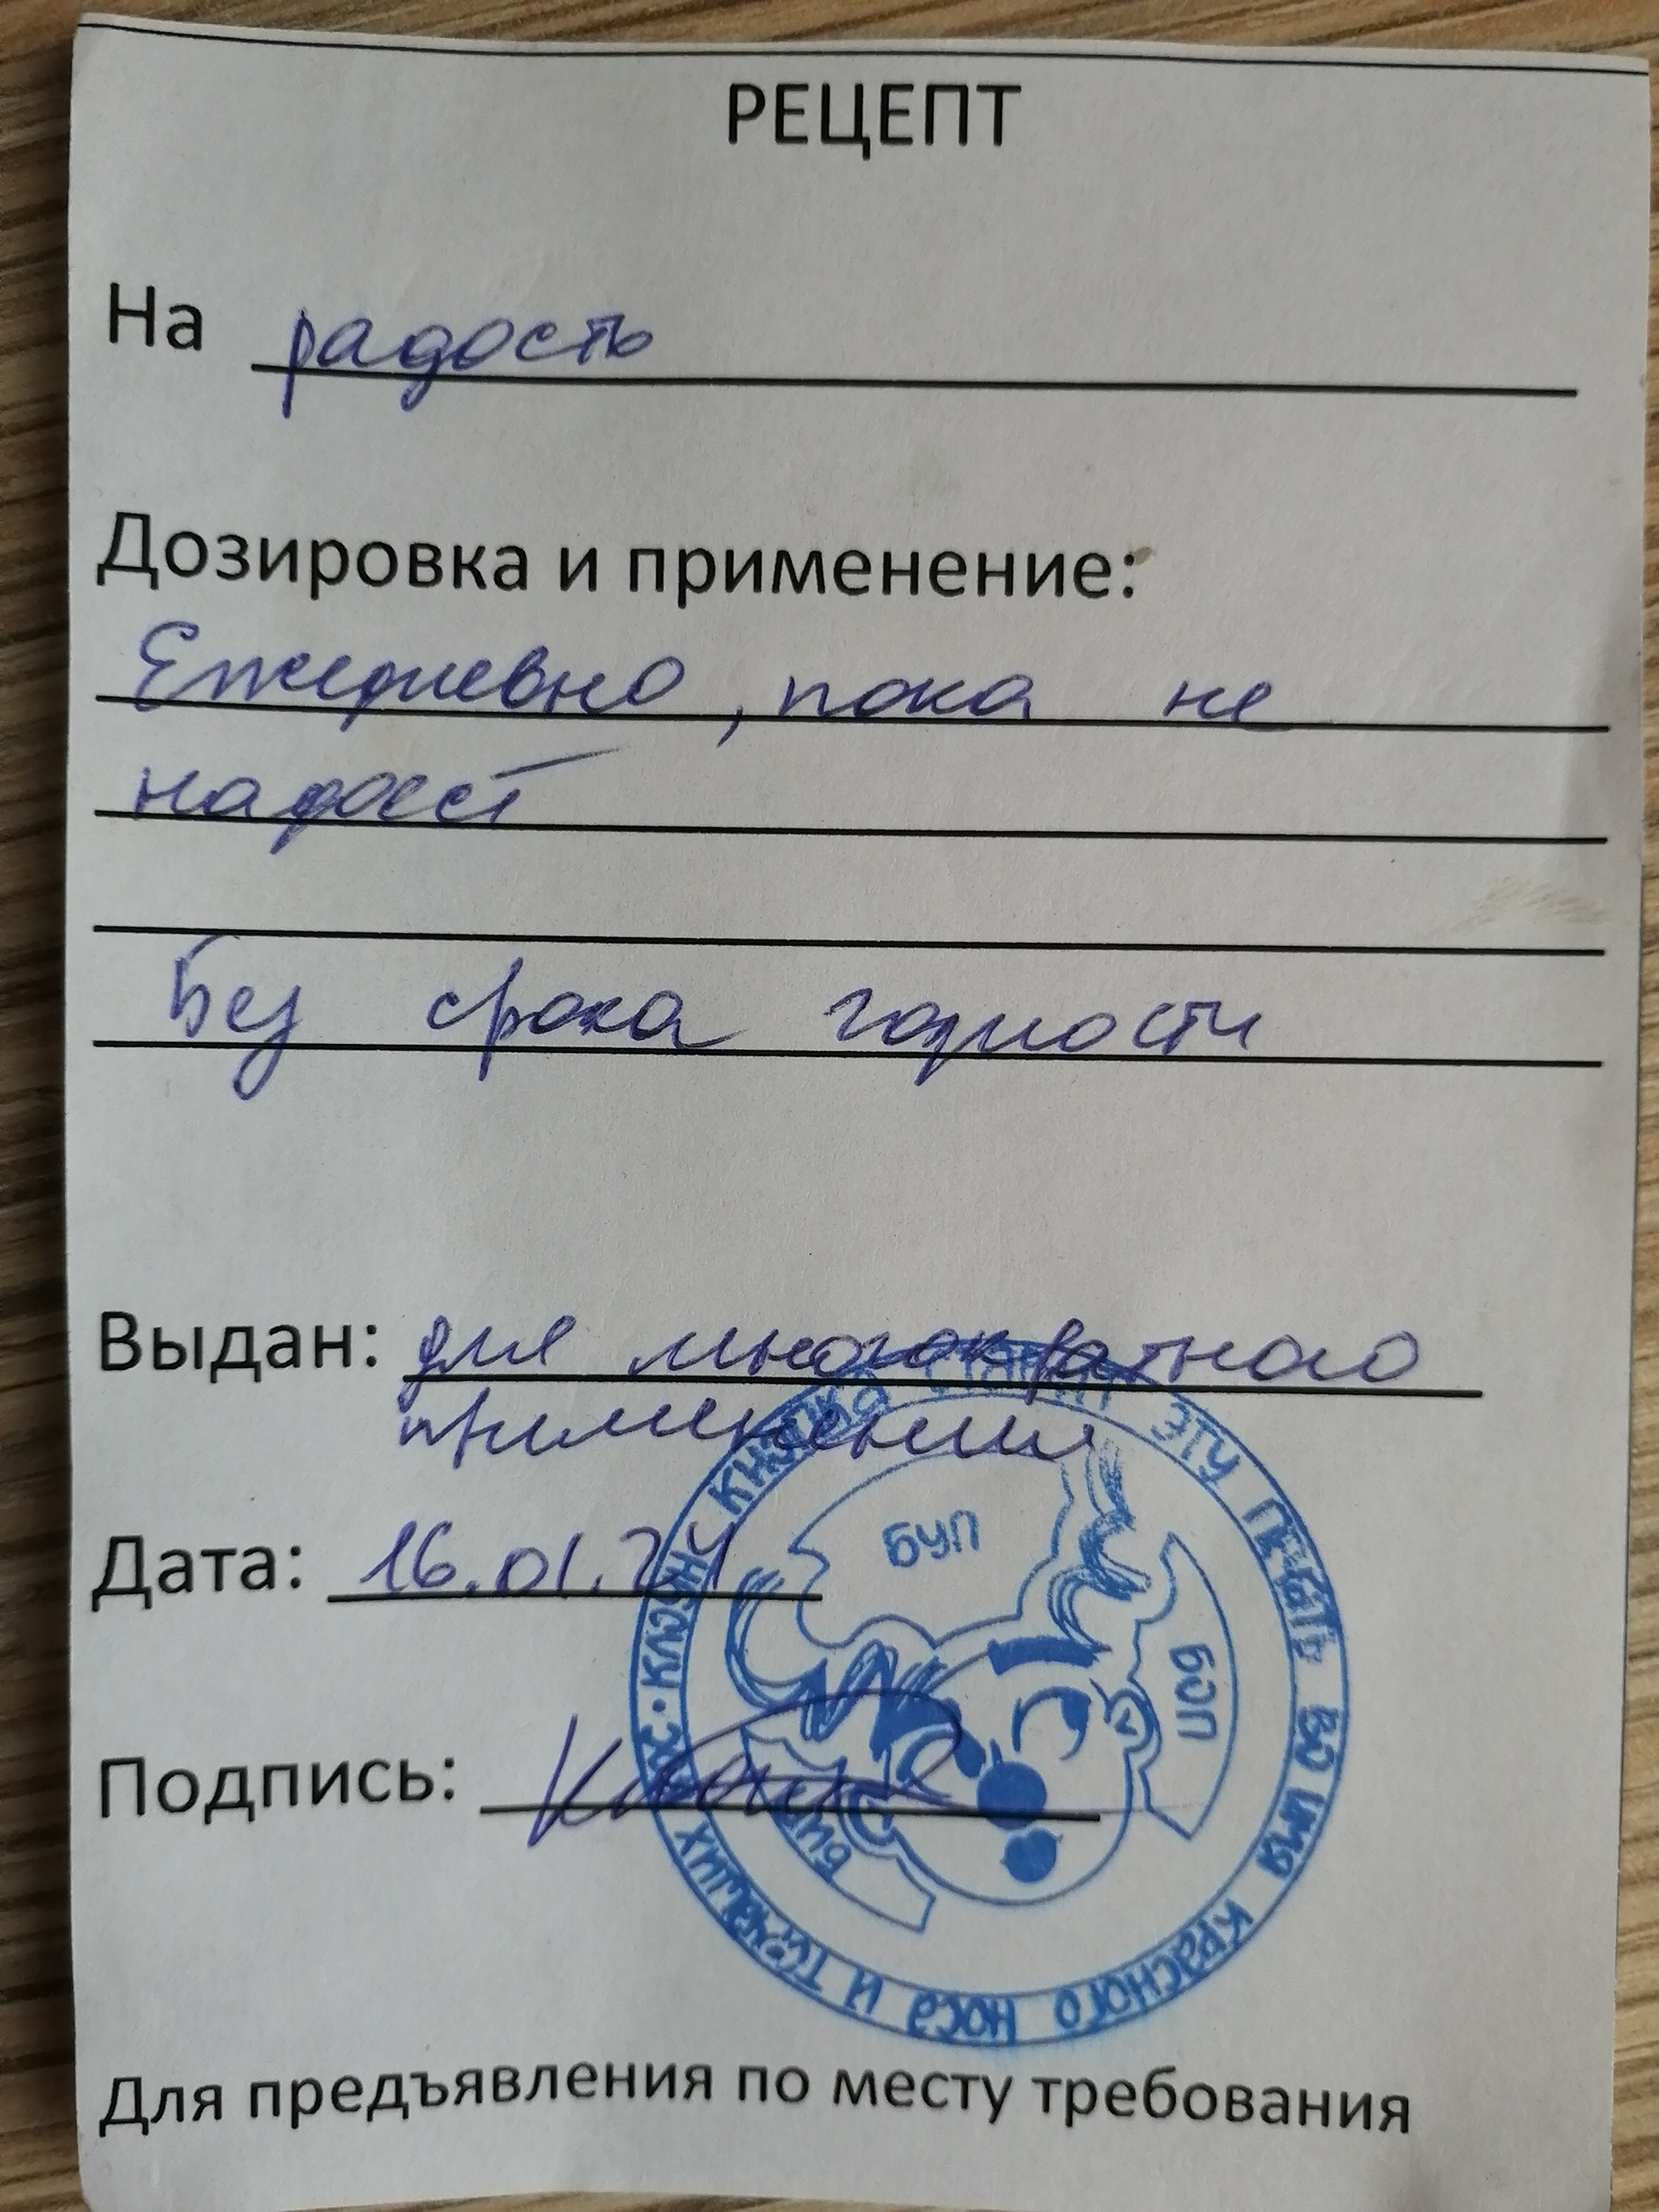 РЕЦЕПТ
На радость
Дозировка и применение:
Ежедневно, пока не
надоест
Без срока годности
Выдан: для многократного
применения
Дата: 16.01.24
Подпись:
КЛОУН КНОПКА СТАВИТ ЭТУ ПЕЧАТЬ ВО ИМЯ КРАСНОГО НОСА И ТОРЧАЩИХ
БУП
БОП
БИП
Для предъявления по месту требования